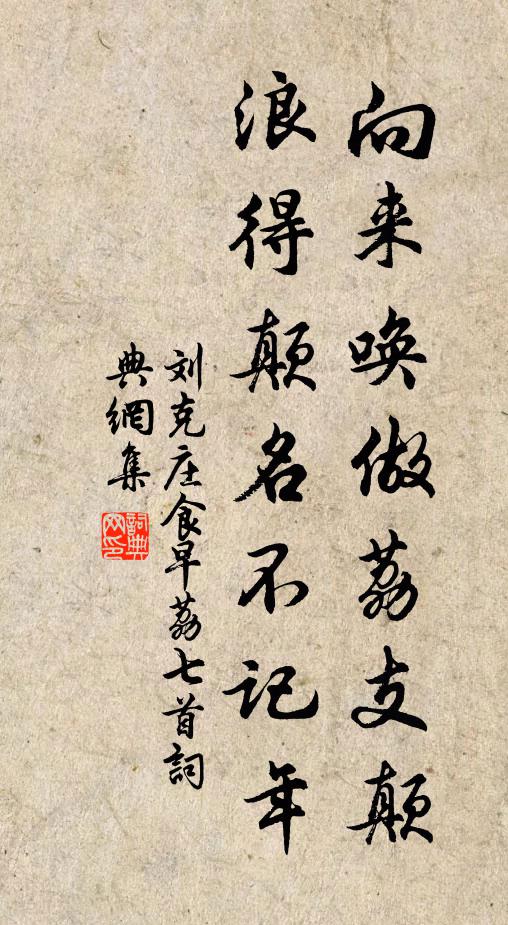 向来唤做荔支颠
浪得颠名不记年
刘克庄食早荔七首詞
典網集
詞典网印